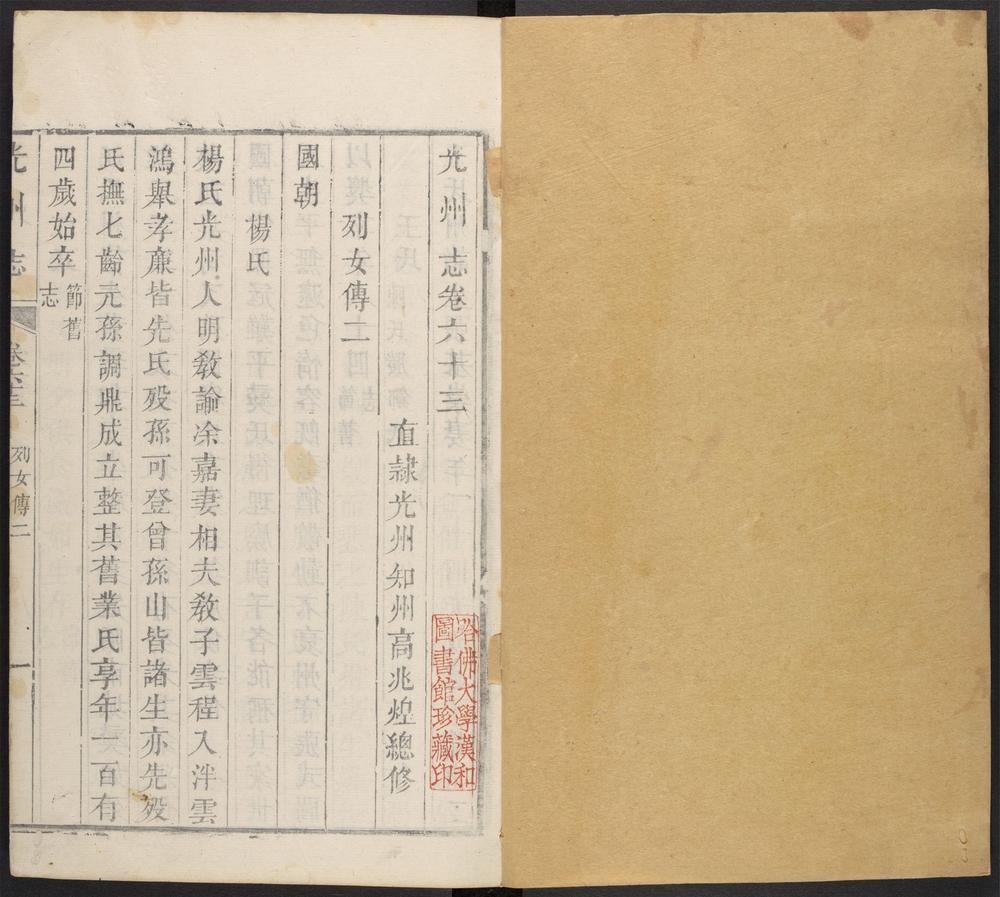 光州志卷六十三
直隸光州知州高兆煌總修
列女傳二
國朝
楊氏
楊氏光州人明敎諭凃嘉妻相夫敎子雲程入泮雲
鴻舉孝廉皆先氏殁孫可登曾孫山皆諸生亦先殁
氏撫七齡元孫調鼎成立整其舊業氏享年一百有
四歲始卒節舊
志
光州志 卷六十三 列女傳二 一
哈佛大學漢和
圖書館珍藏印